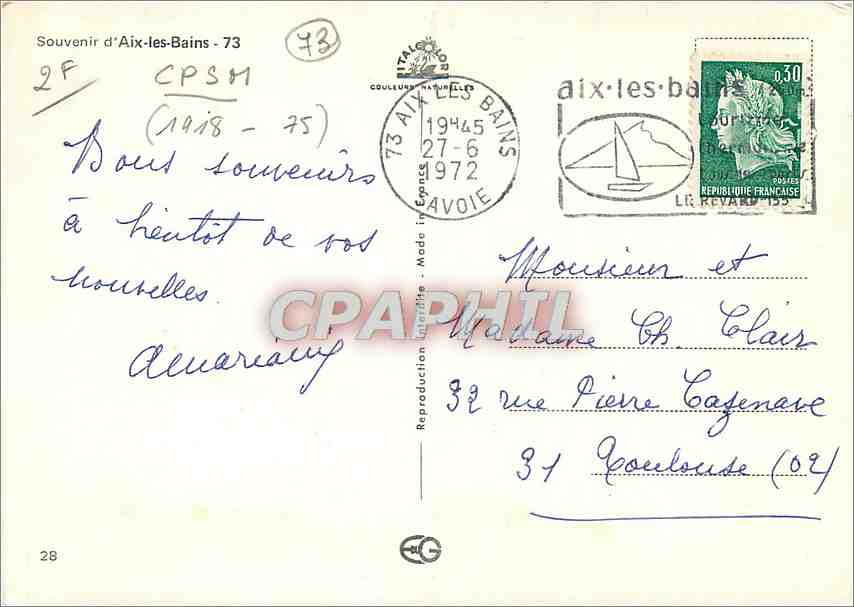 Souvenir d'Aix-les-Bains - 73
73
2F
CPSM
(1918 - 75)
ITALCOLOR
COULEURS NATURELLES
Bons souvenirs
à bientôt de vos
nouvelles.
73 AIX LES BAINS
19H45
27-6
1972
SAVOIE
aix·les·bains
LE REVARD 1550
0,30
POSTES
REPUBLIQUE FRANÇAISE
Reproduction Interdite - Made in France
CPAPHIL
Monsieur et
Madame Ch. Clair
32 rue Pierre Cazenave
31 Toulouse (02)
28